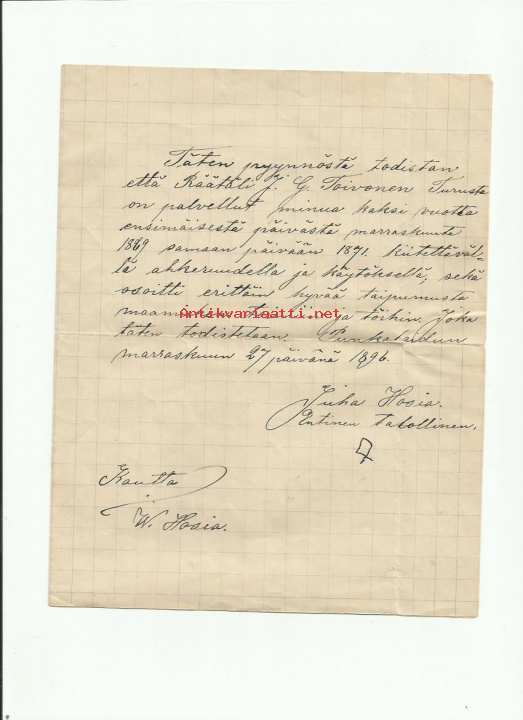 Täten pyynnöstä todistan
että Räätäli J. G. Toivonen Turusta
on palvellut minua kaksi vuotta
ensimäisestä päivästä marraskuuta
1869 samaan päivään 1871. kiitettäväl-
lä ahkeruudella ja käytöksellä, sekä
osoitti erittäin hyvää taipumusta
antikvariaatti.net
ja töihin. Joka
täten todistetaan. Punkalaidun
marraskuun 27 päivänä 1896.
Juha Hosia.
Entinen talollinen.
Kautta
W. Hosia.